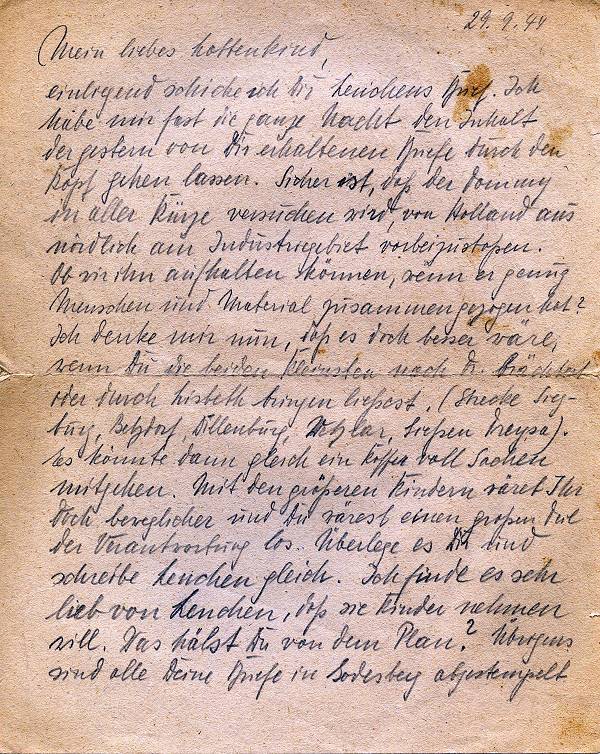 29.9.44
Mein liebes Lottenkind,
einliegend schicke ich Dir Lenchens Brief. Ich
habe mir fast die ganze Nacht den Inhalt
der gestern von Dir erhaltenen Briefe durch den
Kopf gehen lassen. Sicher ist, daß der Tommy
in aller Kürze versuchen wird, von Holland aus
nördlich am Industriegebiet vorbeizustoßen.
Ob wir ihn aufhalten können, wenn er genug
Menschen und Material zusammengezogen hat?
Ich denke mir nun, daß es doch besser wäre,
wenn Du die beiden Kleinsten nach
oder durch Lisbeth bringen ließest. (Strecke Sieg-
burg, Betzdorf, Dillenburg, Wetzlar, Gießen Treysa).
Es könnte dann gleich ein Koffer voll Sachen
mitgehen. Mit den größeren Kindern wäret Ihr
doch beweglicher und Du wärest einen großen Teil
der Verantwortung los. Überlege es Dir und
schreibe Lenchen gleich. Ich finde es sehr
lieb von Lenchen, daß sie Kinder nehmen
will. Was hälst Du von dem Plan? Übrigens
sind alle Deine Briefe in Godesberg abgestempelt